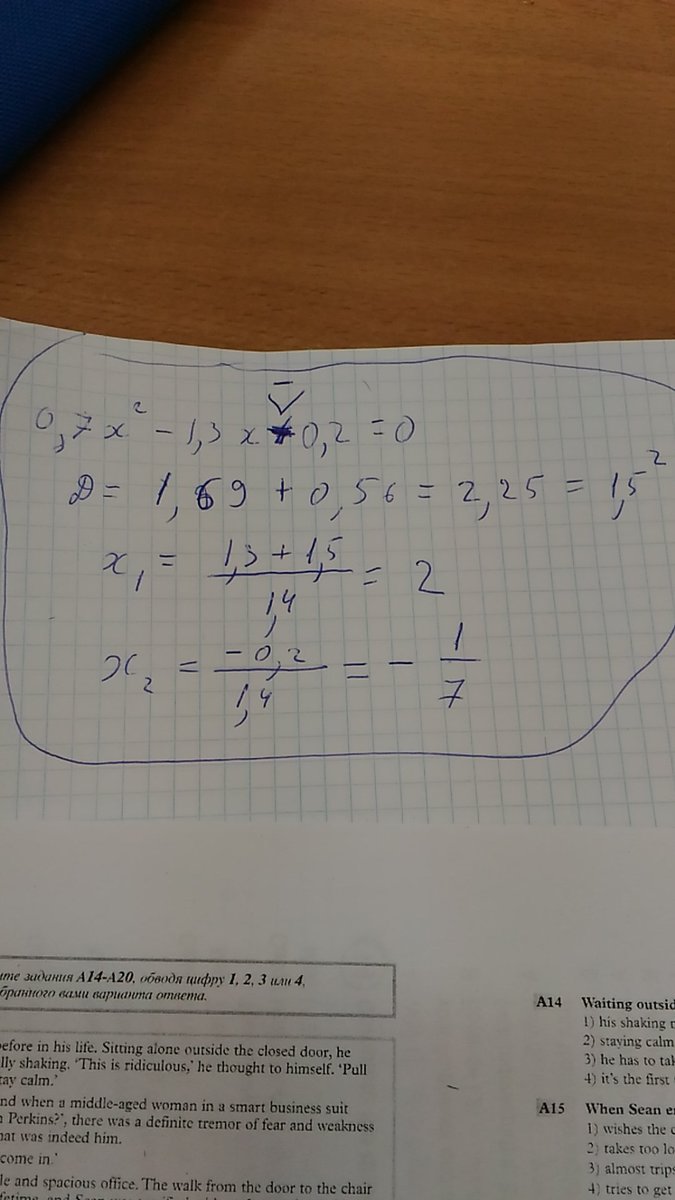 0,7x² - 1,3x - 0,2 = 0
D = 1,69 + 0,56 = 2,25 = 1,5²
x₁ = (1,3 + 1,5)/1,4 = 2
x₂ = -0,2/1,4 = - 1/7
задания A14-A20, обводя цифру 1, 2, 3 или 4,
вами варианта ответа.
before in his life. Sitting alone outside the closed door, he
shaking. ‘This is ridiculous,’ he thought to himself. ‘Pull
calm.’
when a middle-aged woman in a smart business suit
Perkins?’, there was a definite tremor of fear and weakness
was indeed him.
come in.’
and spacious office. The walk from the door to the chair
A14 Waiting
1) his shaking
2) staying calm
3) he has to
4) it's the first
A15 When Sean
1) wishes the
2) takes too
3) almost
4) tries to get